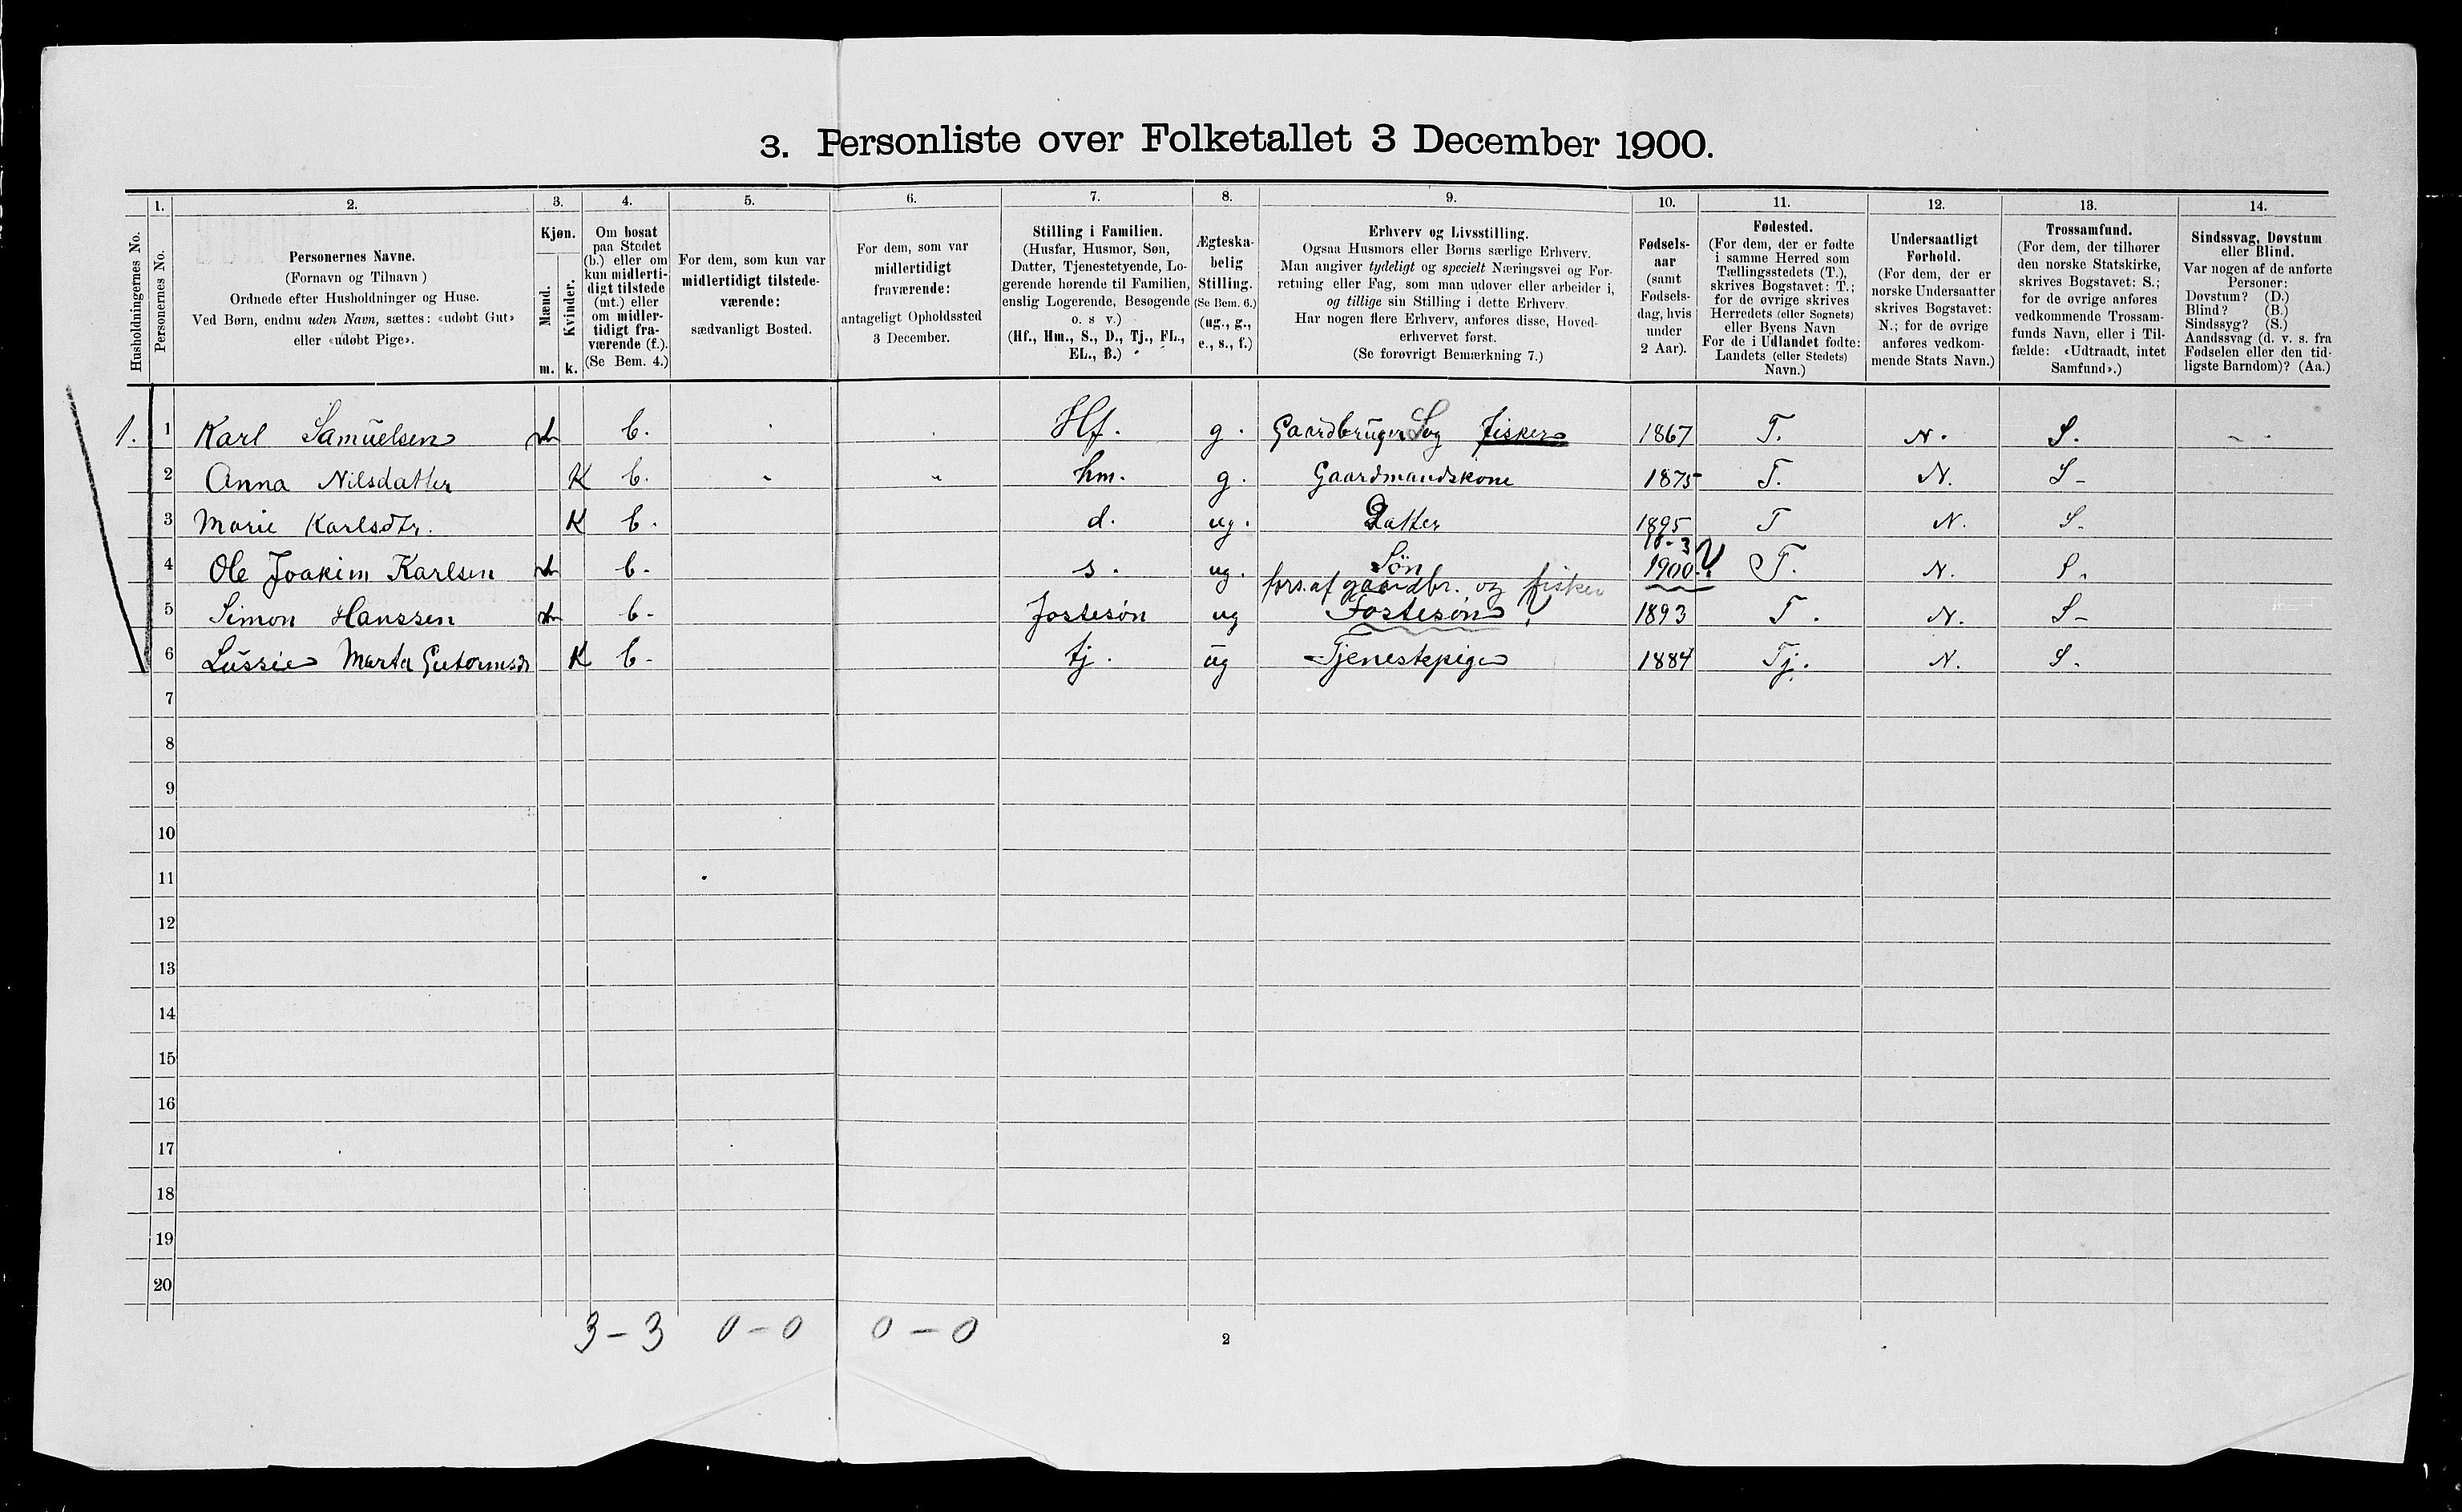 3. Personliste over Folketallet 3 December 1900.
1. 2. 3. 4. 5. 6. 7. 8. 9. 10. 11. 12. 13. 14.
Husholdningernes No.
Personernes No.
Personernes Navne.
(Fornavn og Tilnavn)
Ordnede efter Husholdninger og Huse.
Ved Børn, endnu uden Navn, sættes: «udøbt Gut»
eller «udøbt Pige».
Kjøn.
Mænd.
Kvinder.
m. k.
Om bosat
paa Stedet
(b.) eller om
kun midlerti-
digt tilstede
(mt.) eller
om midler-
tidigt fra-
værende (f.).
(Se Bem. 4.)
For dem, som kun var
midlertidigt tilstede-
værende:
sædvanligt Bosted.
For dem, som var
midlertidigt
fraværende:
antageligt Opholdssted
3 December.
Stilling i Familien.
(Husfar, Husmor, Søn,
Datter, Tjenestetyende, Lo-
gerende hørende til Familien,
enslig Logerende, Besøgende
o. s v.)
(Hf., Hm., S., D., Tj., FL.,
EL., B.)
Ægteska-
belig
Stilling.
(Se Bem. 6.)
(ug., g.,
e., s., f.)
Erhverv og Livsstilling.
Ogsaa Husmors eller Børns særlige Erhverv.
Man angiver tydeligt og specielt Næringsvei og For-
retning eller Fag, som man udøver eller arbeider i,
og tillige sin Stilling i dette Erhverv.
Har nogen flere Erhverv, anføres disse, Hoved-
erhvervet først.
(Se forøvrigt Bemærkning 7.)
Fødsels-
aar
(samt
Fødsels-
dag, hvis
under
2 Aar).
Fødested.
(For dem, der er fødte
i samme Herred som
Tællingsstedets (T.),
skrives Bogstavet: T.;
for de øvrige skrives
Herredets (eller Sognets)
eller Byens Navn
For de i Udlandet fødte:
Landets (eller Stedets)
Navn.)
Undersaatligt
Forhold.
(For dem, der er
norske Undersaatter
skrives Bogstavet:
N.; for de øvrige
anføres vedkom-
mende Stats Navn.)
Trossamfund.
(For dem, der tilhører
den norske Statskirke,
skrives Bogstavet: S.;
for de øvrige anføres
vedkommende Trossam-
funds Navn, eller i Til-
fælde: «Udtraadt, intet
Samfund».)
Sindssvag, Døvstum
eller Blind.
Var nogen af de anførte
Personer:
Døvstum? (D.)
Blind? (B.)
Sindssyg? (S.)
Aandssvag (d. v. s. fra
Fødselen eller den tid-
ligste Barndom)? (Aa.)
1. 1 Karl Samuelsen m b. Hf. g. Gaardbruger og fisker 1867 T. N. S.
2 Anna Nilsdatter K b. hm. g. Gaardmandskone 1875 T. N. S
3 Marie Karlsdtr. K b. d. ug. Datter 1895 T N. S.
4 Ole Joakim Karlsen m b. s. ug. Søn 18-3 1900. T. N. S.
fors. af gaardbr. og fisker
5 Simon Hanssen m b. Fostesøn ug Fostesøn 1893 T. N. S
6 Lussie Marta Gutormsdr K b. tj. ug Tjenestepige 1884 Tj. N. S.
7
8
9
10
11
12
13
14
15
16
17
18
19
20
3-3 0-0 0-0
2